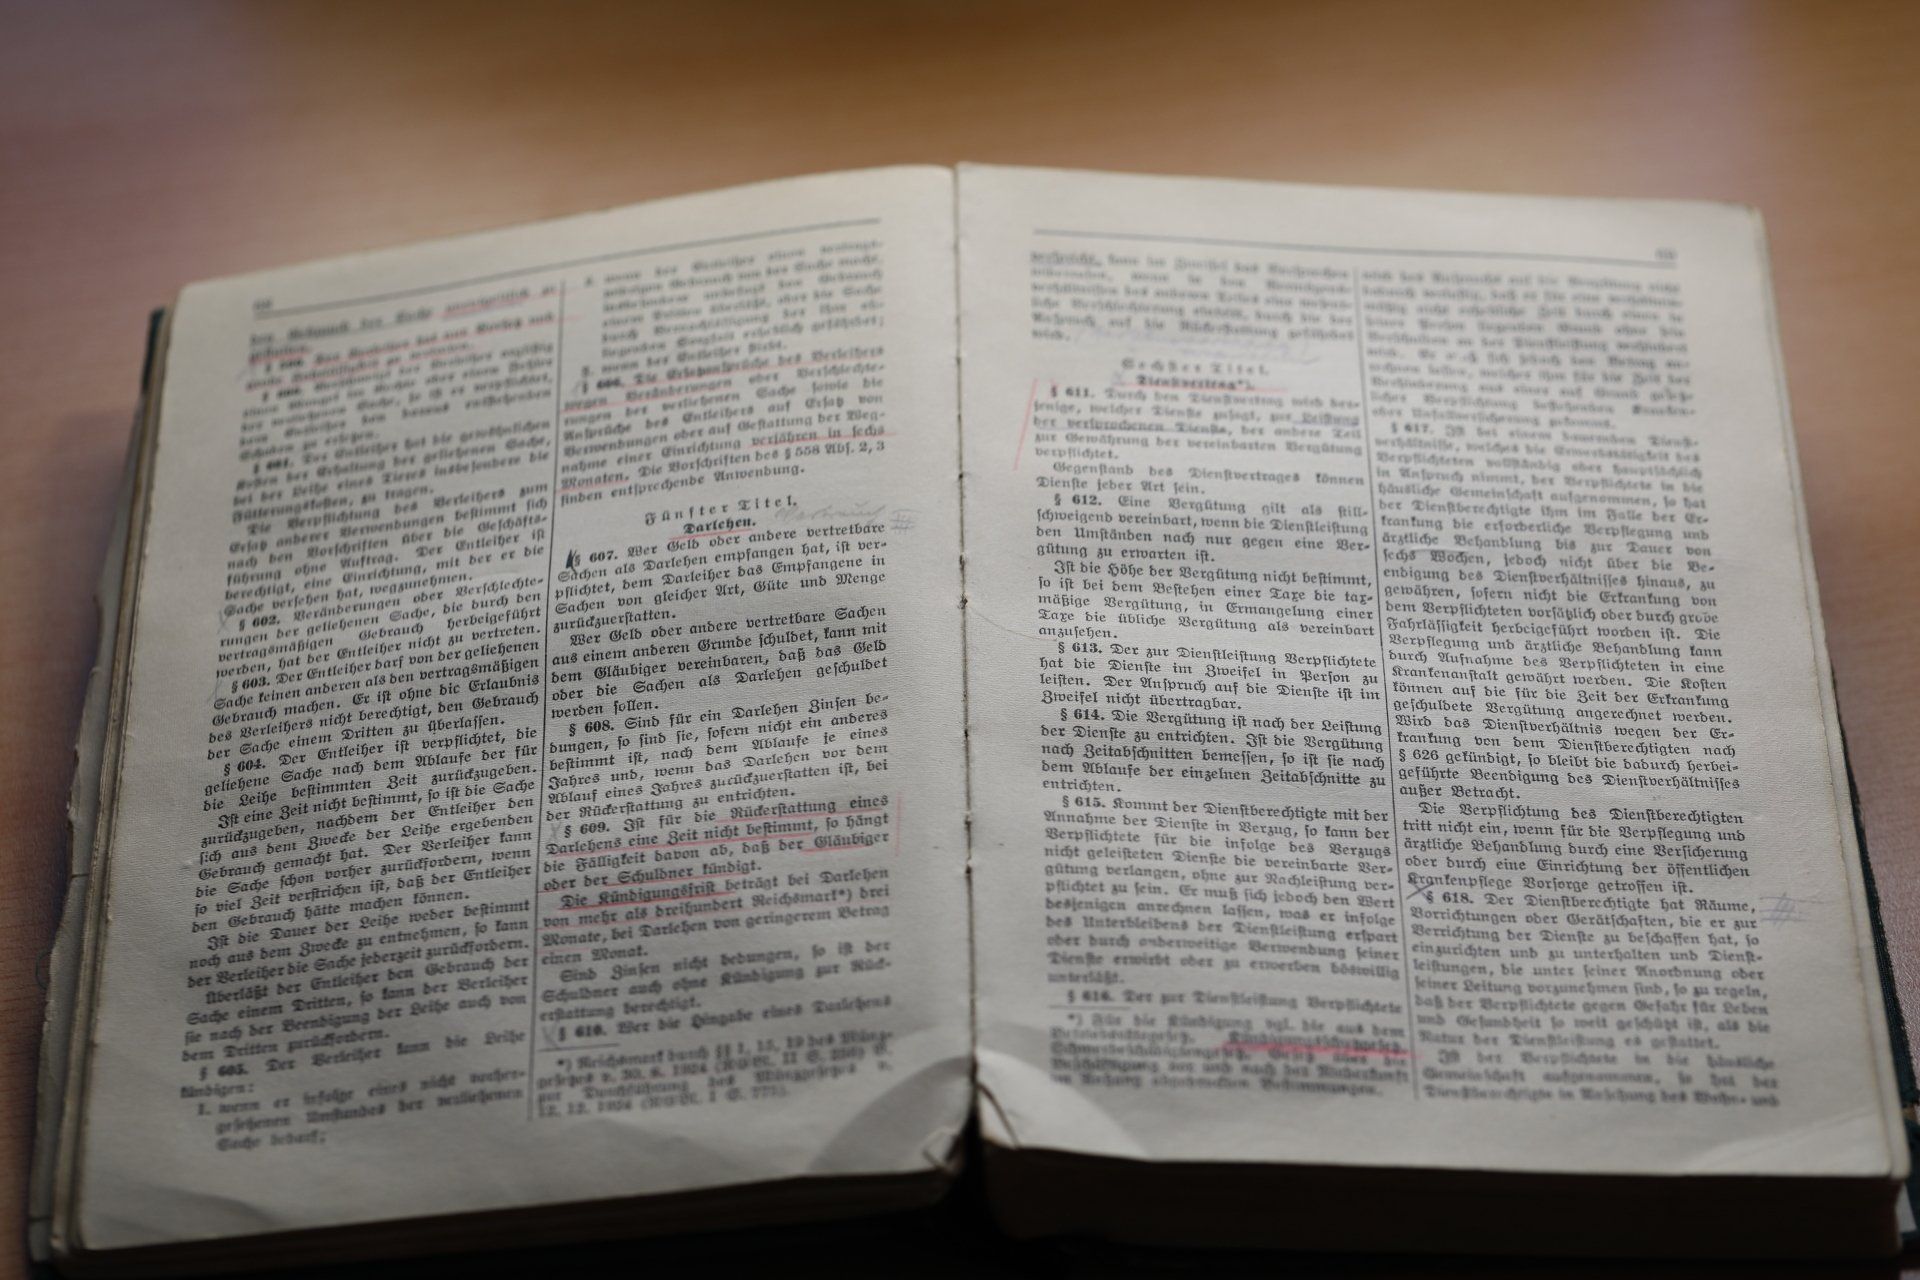 den Gebrauch der Sache unentgeltlich zu
gestatten.
§ 599. Der Verleiher hat nur Vorsatz und
grobe Fahrlässigkeit zu vertreten.
§ 600. Verschweigt der Verleiher arglistig
einen Mangel im Rechte oder einen Fehler
der verliehenen Sache, so ist er verpflichtet,
dem Entleiher den daraus entstehenden
Schaden zu ersetzen.
§ 601. Der Entleiher hat die gewöhnlichen
Kosten der Erhaltung der geliehenen Sache,
bei der Leihe eines Tieres insbesondere die
Fütterungskosten, zu tragen.
Die Verpflichtung des Verleihers zum
Ersatz anderer Verwendungen bestimmt sich
nach den Vorschriften über die Geschäfts-
führung ohne Auftrag. Der Entleiher ist
berechtigt, eine Einrichtung, mit der er die
Sache versehen hat, wegzunehmen.
§ 602. Veränderungen oder Verschlechte-
rungen der geliehenen Sache, die durch den
vertragsmäßigen Gebrauch herbeigeführt
werden, hat der Entleiher nicht zu vertreten.
§ 603. Der Entleiher darf von der geliehenen
Sache keinen anderen als den vertragsmäßigen
Gebrauch machen. Er ist ohne die Erlaubnis
des Verleihers nicht berechtigt, den Gebrauch
der Sache einem Dritten zu überlassen.
§ 604. Der Entleiher ist verpflichtet, die
geliehene Sache nach dem Ablaufe der für
die Leihe bestimmten Zeit zurückzugeben.
Ist eine Zeit nicht bestimmt, so ist die Sache
zurückzugeben, nachdem der Entleiher den
sich aus dem Zwecke der Leihe ergebenden
Gebrauch gemacht hat. Der Verleiher kann
die Sache schon vorher zurückfordern, wenn
so viel Zeit verstrichen ist, daß der Entleiher
den Gebrauch hätte machen können.
Ist die Dauer der Leihe weder bestimmt
noch aus dem Zwecke zu entnehmen, so kann
der Verleiher die Sache jederzeit zurückfordern.
Überläßt der Entleiher den Gebrauch der
Sache einem Dritten, so kann der Verleiher
sie nach der Beendigung der Leihe auch von
dem Dritten zurückfordern.
§ 605. Der Verleiher kann die Leihe
kündigen:
1. wenn er infolge eines nicht vorher-
gesehenen Umstandes der verliehenen
Sache bedarf;
2. wenn der Entleiher einen vertrags-
widrigen Gebrauch von der Sache macht,
insbesondere unbefugt den Gebrauch
einem Dritten überläßt, oder die Sache
durch Vernachlässigung der ihm ob-
liegenden Sorgfalt erheblich gefährdet;
3. wenn der Entleiher stirbt.
§ 606. Die Ersatzansprüche des Verleihers
wegen Veränderungen oder Verschlechte-
rungen der verliehenen Sache sowie die
Ansprüche des Entleihers auf Ersatz von
Verwendungen oder auf Gestattung der Weg-
nahme einer Einrichtung verjähren in sechs
Monaten. Die Vorschriften des § 558 Abs. 2, 3
finden entsprechende Anwendung.
Fünfter Titel.
Darlehen.
§ 607. Wer Geld oder andere vertretbare
Sachen als Darlehen empfangen hat, ist ver-
pflichtet, dem Darleiher das Empfangene in
Sachen von gleicher Art, Güte und Menge
zurückzuerstatten.
Wer Geld oder andere vertretbare Sachen
aus einem anderen Grunde schuldet, kann mit
dem Gläubiger vereinbaren, daß das Geld
oder die Sachen als Darlehen geschuldet
werden sollen.
§ 608. Sind für ein Darlehen Zinsen be-
dungen, so sind sie, sofern nicht ein anderes
bestimmt ist, nach dem Ablaufe je eines
Jahres und, wenn das Darlehen vor dem
Ablauf eines Jahres zurückzuerstatten ist, bei
der Rückerstattung zu entrichten.
§ 609. Ist für die Rückerstattung eines
Darlehens eine Zeit nicht bestimmt, so hängt
die Fälligkeit davon ab, daß der Gläubiger
oder der Schuldner kündigt.
Die Kündigungsfrist beträgt bei Darlehen
von mehr als dreihundert Reichsmark*) drei
Monate, bei Darlehen von geringerem Betrag
einen Monat.
Sind Zinsen nicht bedungen, so ist der
Schuldner auch ohne Kündigung zur Rück-
erstattung berechtigt.
§ 610. Wer die Hingabe eines Darlehens
*) Reichsmark durch §§ 1, 15, 19 des Münz-
gesetzes v. 30. 8. 1924
zur Durchführung des Münzgesetzes v.
12. 12. 1924
verspricht, kann im Zweifel das Versprechen
widerrufen, wenn in den Vermögens-
verhältnissen des anderen Teiles eine wesent-
liche Verschlechterung eintritt, durch die der
Anspruch auf die Rückerstattung gefährdet
wird.
Sechster Titel.
Dienstvertrag*).
§ 611. Durch den Dienstvertrag wird der-
jenige, welcher Dienste zusagt, zur Leistung
der versprochenen Dienste, der andere Teil
zur Gewährung der vereinbarten Vergütung
verpflichtet.
Gegenstand des Dienstvertrages können
Dienste jeder Art sein.
§ 612. Eine Vergütung gilt als still-
schweigend vereinbart, wenn die Dienstleistung
den Umständen nach nur gegen eine Ver-
gütung zu erwarten ist.
Ist die Höhe der Vergütung nicht bestimmt,
so ist bei dem Bestehen einer Taxe die tax-
mäßige Vergütung, in Ermangelung einer
Taxe die übliche Vergütung als vereinbart
anzusehen.
§ 613. Der zur Dienstleistung Verpflichtete
hat die Dienste im Zweifel in Person zu
leisten. Der Anspruch auf die Dienste ist im
Zweifel nicht übertragbar.
§ 614. Die Vergütung ist nach der Leistung
der Dienste zu entrichten. Ist die Vergütung
nach Zeitabschnitten bemessen, so ist sie nach
dem Ablaufe der einzelnen Zeitabschnitte zu
entrichten.
§ 615. Kommt der Dienstberechtigte mit der
Annahme der Dienste in Verzug, so kann der
Verpflichtete für die infolge des Verzugs
nicht geleisteten Dienste die vereinbarte Ver-
gütung verlangen, ohne zur Nachleistung ver-
pflichtet zu sein. Er muß sich jedoch den Wert
desjenigen anrechnen lassen, was er infolge
des Unterbleibens der Dienstleistung erspart
oder durch anderweitige Verwendung seiner
Dienste erwirbt oder zu erwerben böswillig
unterläßt.
§ 616. Der zur Dienstleistung Verpflichtete
*) Für die Kündigung vgl. die aus dem
Kündigungsschutzgesetz,
im Anhang abgedruckten Bestimmungen.
wird des Anspruchs auf die Vergütung nicht
dadurch verlustig, daß er für eine verhältnis-
mäßig nicht erhebliche Zeit durch einen in
seiner Person liegenden Grund ohne sein
Verschulden an der Dienstleistung verhindert
wird. Er muß sich jedoch den Betrag an-
rechnen lassen, welcher ihm für die Zeit der
Verhinderung aus einer auf Grund gesetz-
licher Verpflichtung bestehenden Kranken-
oder Unfallversicherung zukommt.
§ 617. Ist bei einem dauernden Dienst-
verhältnisse, welches die Erwerbstätigkeit des
Verpflichteten vollständig oder hauptsächlich
in Anspruch nimmt, der Verpflichtete in die
häusliche Gemeinschaft aufgenommen, so hat
der Dienstberechtigte ihm im Falle der Er-
krankung die erforderliche Verpflegung und
ärztliche Behandlung bis zur Dauer von
sechs Wochen, jedoch nicht über die Be-
endigung des Dienstverhältnisses hinaus, zu
gewähren, sofern nicht die Erkrankung von
dem Verpflichteten vorsätzlich oder durch grobe
Fahrlässigkeit herbeigeführt worden ist. Die
Verpflegung und ärztliche Behandlung kann
durch Aufnahme des Verpflichteten in eine
Krankenanstalt gewährt werden. Die Kosten
können auf die für die Zeit der Erkrankung
geschuldete Vergütung angerechnet werden.
Wird das Dienstverhältnis wegen der Er-
krankung von dem Dienstberechtigten nach
§ 626 gekündigt, so bleibt die dadurch herbei-
geführte Beendigung des Dienstverhältnisses
außer Betracht.
Die Verpflichtung des Dienstberechtigten
tritt nicht ein, wenn für die Verpflegung und
ärztliche Behandlung durch eine Versicherung
oder durch eine Einrichtung der öffentlichen
Krankenpflege Vorsorge getroffen ist.
§ 618. Der Dienstberechtigte hat Räume,
Vorrichtungen oder Gerätschaften, die er zur
Verrichtung der Dienste zu beschaffen hat, so
einzurichten und zu unterhalten und Dienst-
leistungen, die unter seiner Anordnung oder
seiner Leitung vorzunehmen sind, so zu regeln,
daß der Verpflichtete gegen Gefahr für Leben
und Gesundheit so weit geschützt ist, als die
Natur der Dienstleistung es gestattet.
Ist der Verpflichtete in die häusliche
Gemeinschaft aufgenommen, so hat der
Dienstberechtigte in Ansehung des Wohn- und